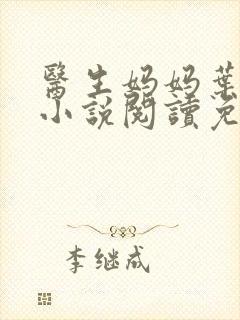 醫生妈妈葉
小說閱讀免
李继成